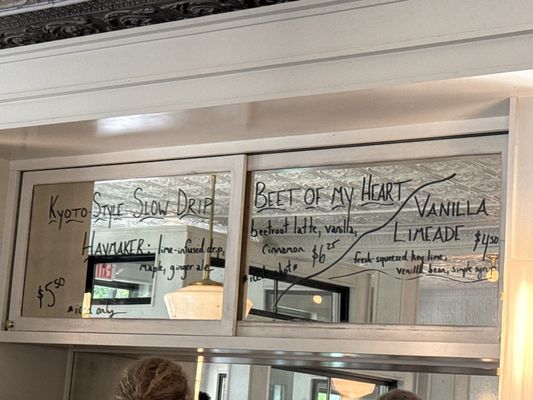 Kyoto Style Slow Drip
Haymaker: lime-infused drip,
maple, ginger ale
$5.50
*iced only
Beet of my Heart
beetroot latte, vanilla,
cinnamon $6.25
Vanilla
Limeade $4.50
fresh-squeezed key lime,
vanilla bean, simple syrup